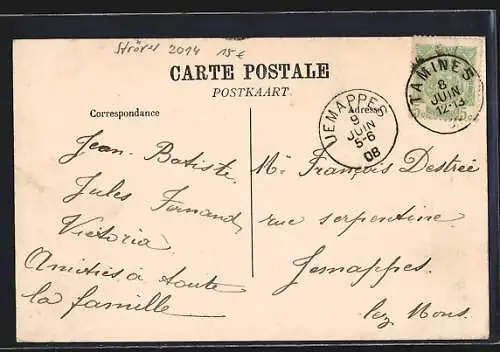 Ströver 2014 15€
CARTE POSTALE
POSTKAART.
Correspondance
Adresse
TAMINES
8
JUIN
12-13
JEMAPPES
9
JUIN
5-6
08
Jean-Batiste
Jules Fernand
Victoria
Amitiés à toute
la famille
Mr François Destrée
rue serpentine
Jemappes.
lez Mons.